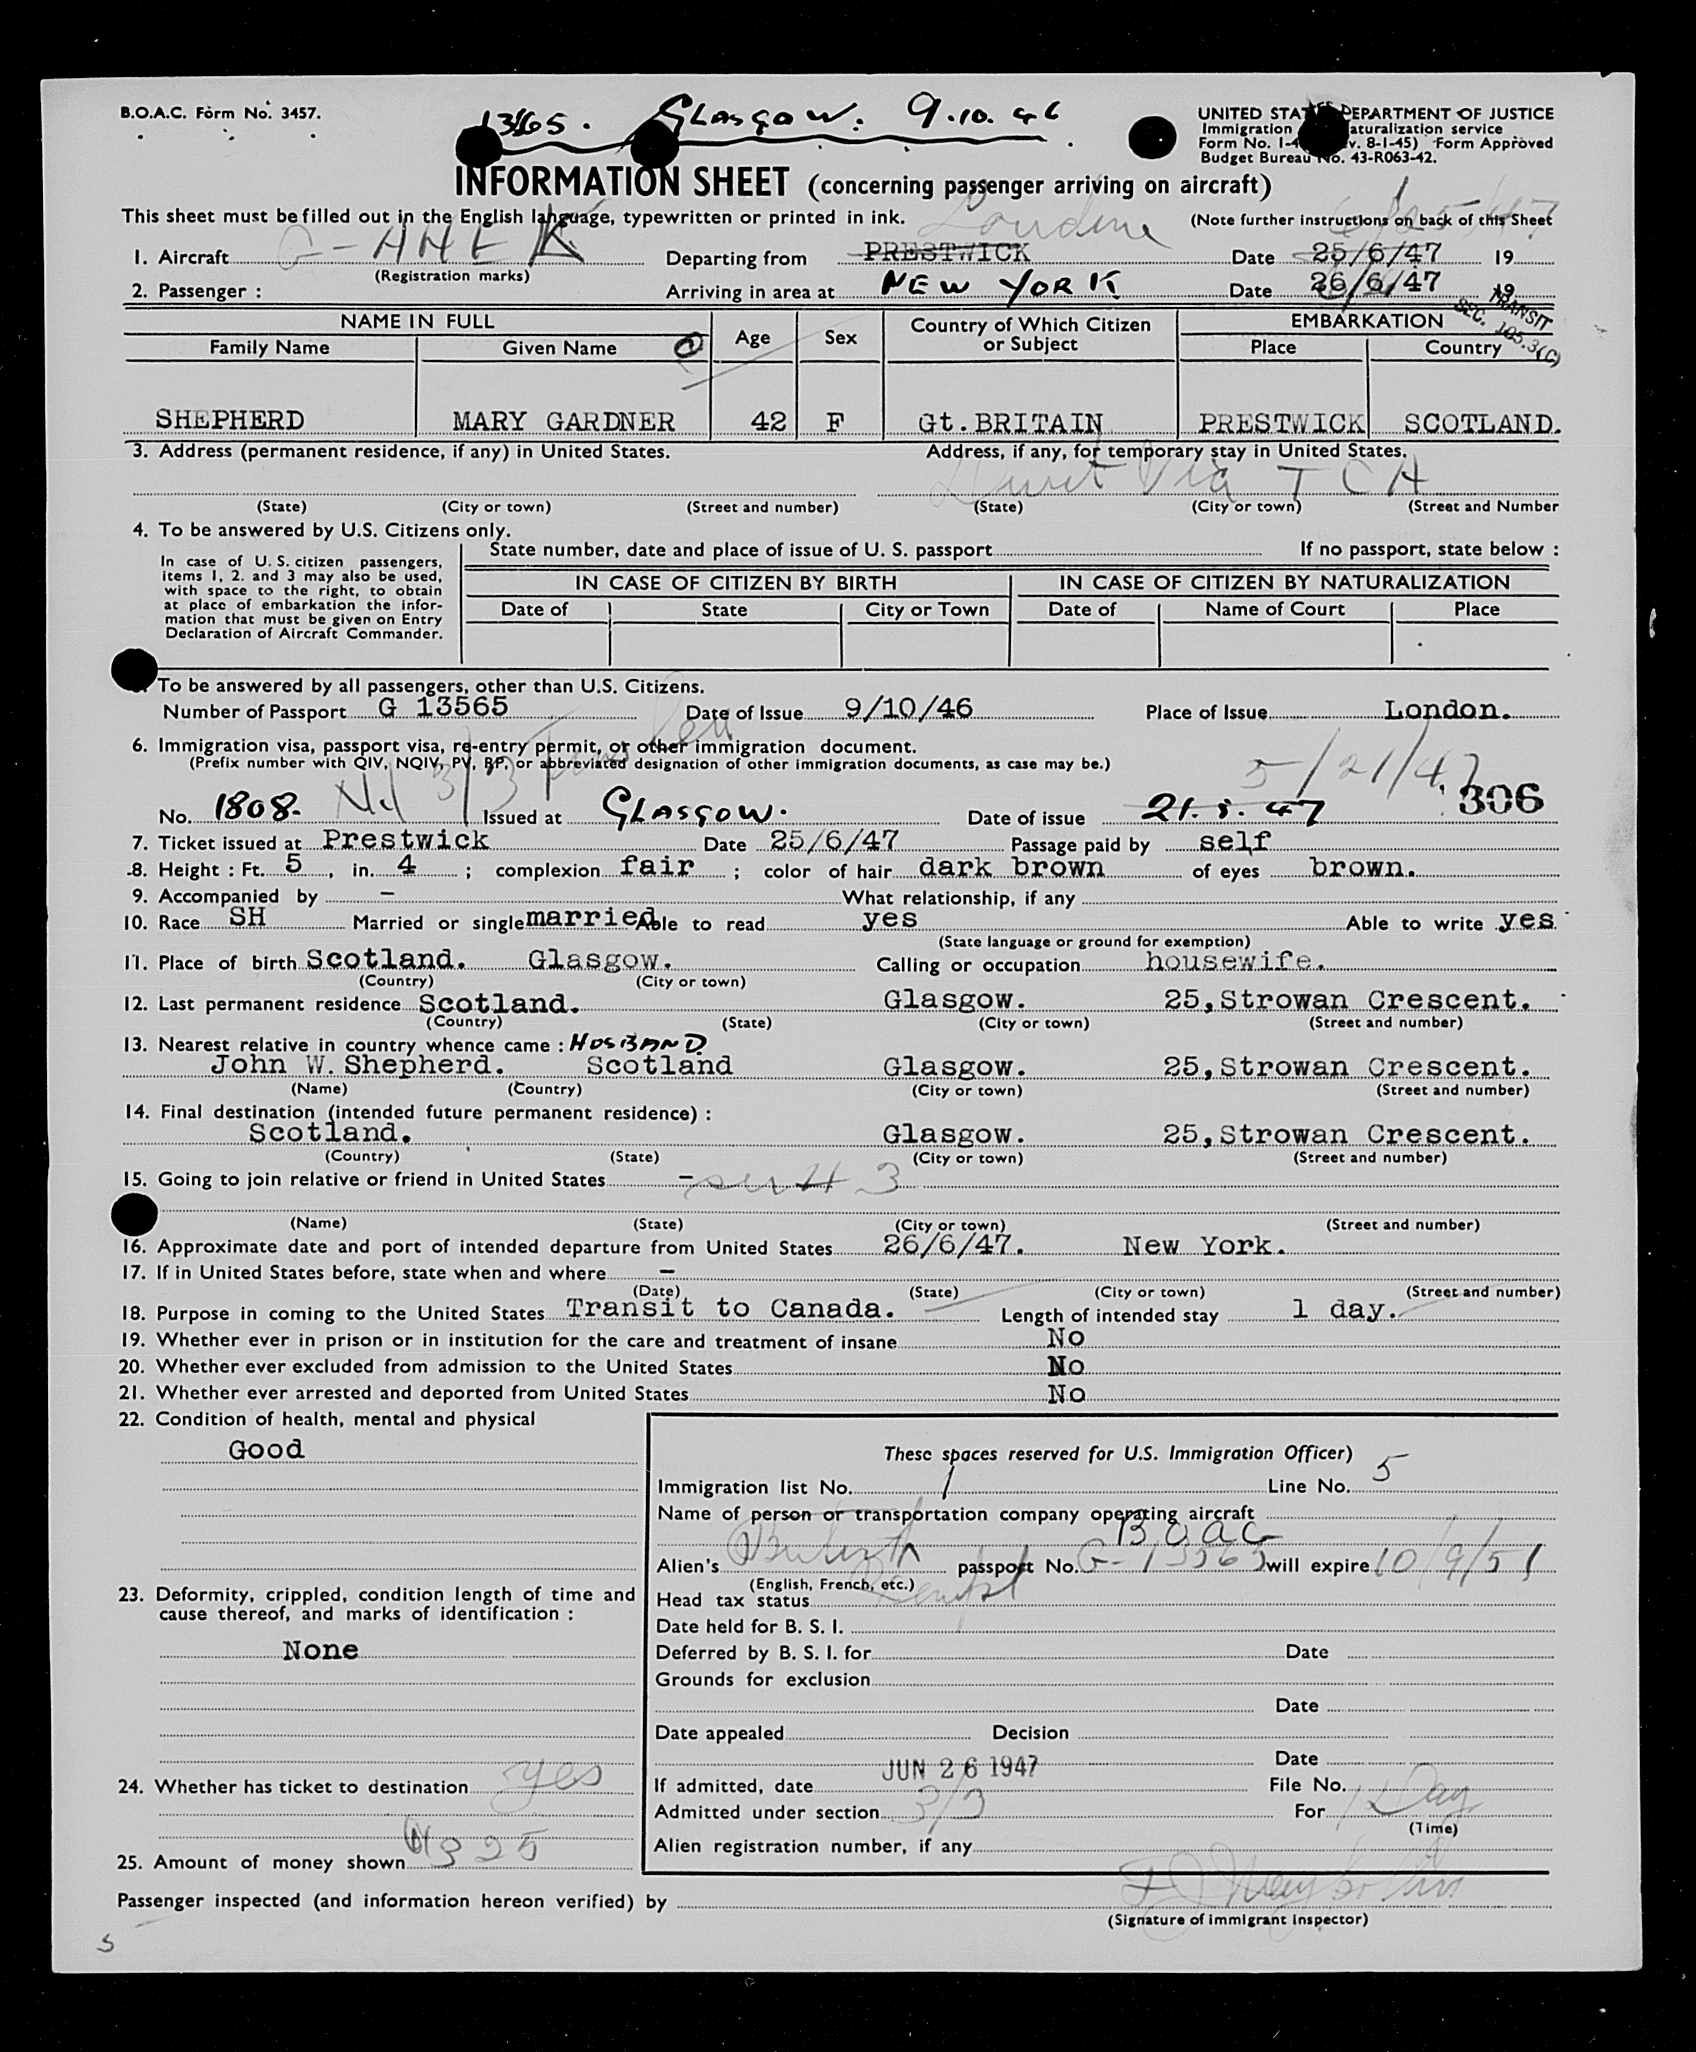 B.O.A.C. Form No. 3457.
Glasgow. 9.10.46
UNITED STATES DEPARTMENT OF JUSTICE
Immigration aturalization service
Form No. I-4 v. 8-1-45) Form Approved
Budget Bureau No. 43-R063-42.
INFORMATION SHEET (concerning passenger arriving on aircraft)
This sheet must be filled out in the English language, typewritten or printed in ink. (Note further instructions on back of this Sheet
1. Aircraft Departing from PRESTWICK Date 25/6/47 19
(Registration marks)
2. Passenger : Arriving in area at NEW YORK Date 26/6/47 19
TRANSIT
SEC. 105.3(C)
NAME IN FULL Age Sex Country of Which Citizen or Subject EMBARKATION
Family Name Given Name Place Country
SHEPHERD MARY GARDNER 42 F Gt.BRITAIN PRESTWICK SCOTLAND.
3. Address (permanent residence, if any) in United States. Address, if any, for temporary stay in United States.
Via TCA
(State) (City or town) (Street and number) (State) (City or town) (Street and Number
4. To be answered by U.S. Citizens only.
State number, date and place of issue of U. S. passport If no passport, state below :
In case of U. S. citizen passengers,
items 1, 2. and 3 may also be used,
with space to the right, to obtain
at place of embarkation the infor-
mation that must be given on Entry
Declaration of Aircraft Commander.
IN CASE OF CITIZEN BY BIRTH IN CASE OF CITIZEN BY NATURALIZATION
Date of State City or Town Date of Name of Court Place
To be answered by all passengers, other than U.S. Citizens.
Number of Passport G 13565 Date of Issue 9/10/46 Place of Issue London.
6. Immigration visa, passport visa, re-entry permit, or other immigration document.
(Prefix number with QIV, NQIV, PV, RP, or abbreviated designation of other immigration documents, as case may be.)
5/21/47
306
No. 1808. Issued at GLASGOW. Date of issue 21.5.47
7. Ticket issued at Prestwick Date 25/6/47 Passage paid by self
8. Height : Ft. 5, in. 4 ; complexion fair ; color of hair dark brown of eyes brown.
9. Accompanied by - What relationship, if any
10. Race SH Married or single married Able to read yes Able to write yes
(State language or ground for exemption)
11. Place of birth Scotland. Glasgow. Calling or occupation housewife.
(Country) (City or town)
12. Last permanent residence Scotland. Glasgow. 25, Strowan Crescent.
(Country) (State) (City or town) (Street and number)
13. Nearest relative in country whence came : HUSBAND
John W. Shepherd. Scotland Glasgow. 25, Strowan Crescent.
(Name) (Country) (City or town) (Street and number)
14. Final destination (intended future permanent residence) :
Scotland. Glasgow. 25, Strowan Crescent.
(Country) (State) (City or town) (Street and number)
15. Going to join relative or friend in United States -
(Name) (State) (City or town) (Street and number)
16. Approximate date and port of intended departure from United States 26/6/47. New York.
17. If in United States before, state when and where -
(Date) (State) (City or town) (Street and number)
18. Purpose in coming to the United States Transit to Canada. Length of intended stay 1 day.
19. Whether ever in prison or in institution for the care and treatment of insane No
20. Whether ever excluded from admission to the United States No
21. Whether ever arrested and deported from United States No
22. Condition of health, mental and physical
Good
These spaces reserved for U.S. Immigration Officer)
Immigration list No. 1 Line No. 5
Name of person or transportation company operating aircraft
BOAC
Alien's British passport No. G-13565 will expire 10/9/51
(English, French, etc.)
23. Deformity, crippled, condition length of time and
cause thereof, and marks of identification :
None
Head tax status Exempt
Date held for B. S. I.
Deferred by B. S. I. for Date
Grounds for exclusion
Date
Date appealed Decision
Date
24. Whether has ticket to destination yes
If admitted, date JUN 26 1947 File No.
Admitted under section 3/3 For 1 Day
(Time)
25. Amount of money shown
Alien registration number, if any
Passenger inspected (and information hereon verified) by
(Signature of Immigrant Inspector)
5